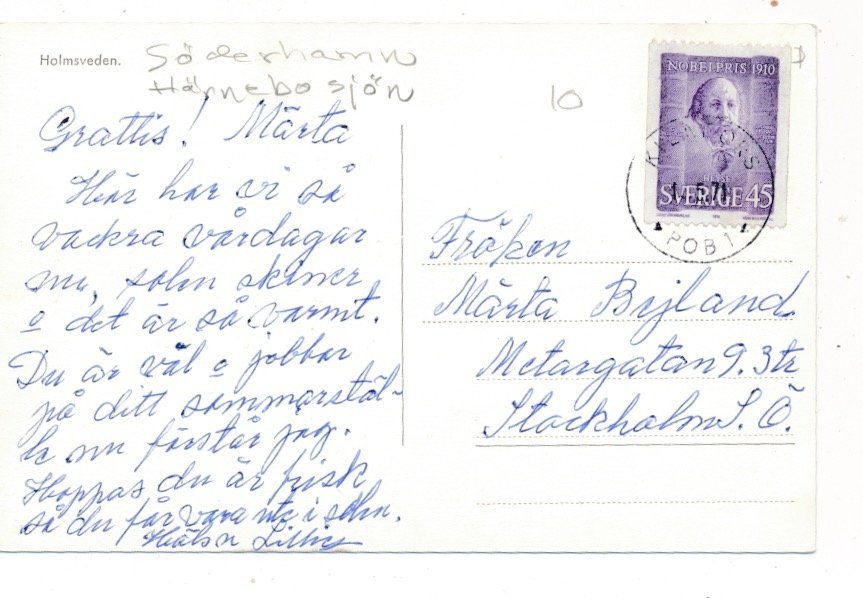 Holmsveden.
Söderhamn
Hännebo sjön
10
NOBELPRIS 1910
SVERIGE 45
POB 1
Grattis! Märta
Här har vi så
vackra vårdagar
nu, solen skiner
o det är så varmt.
Du är väl o jobbar
på ditt sommarstäl-
le nu förstår jag.
Hoppas du är frisk
så du får vara ute i solen.
Hälsn
Fröken
Märta Byland
Metargatan 9. 3tr
Stockholm S. Ö.